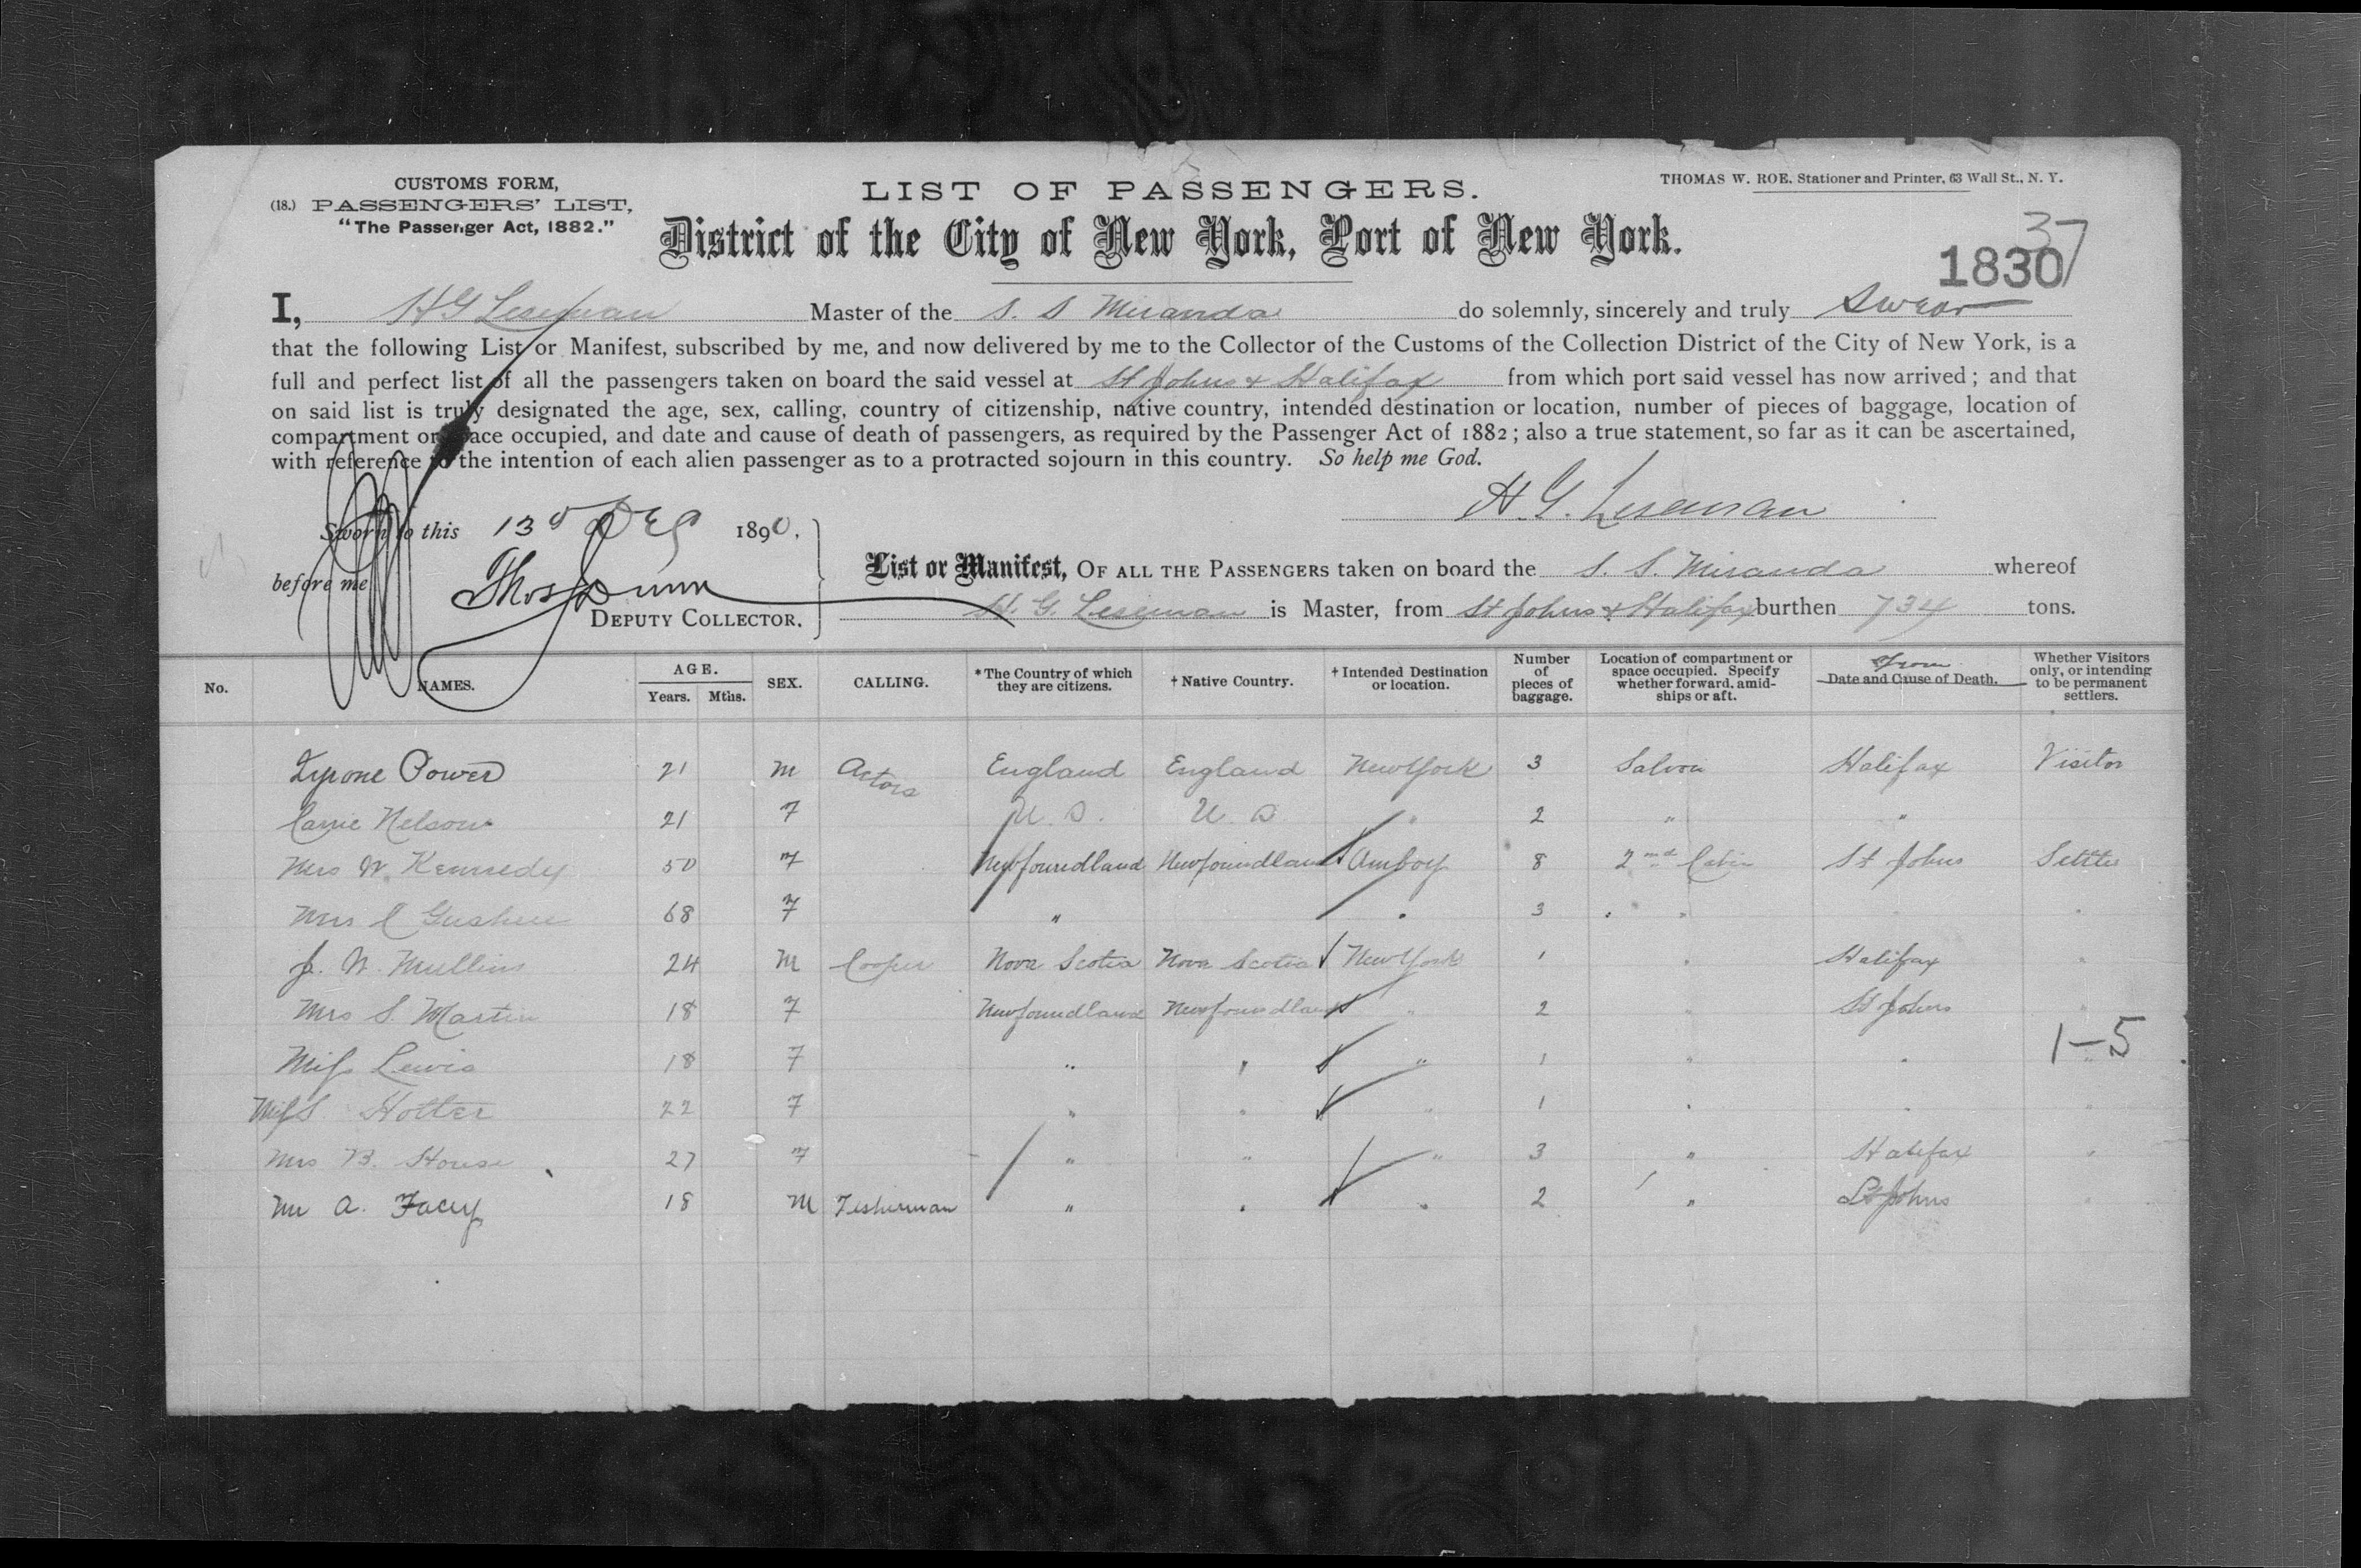 CUSTOMS FORM,
(18.) PASSENGERS' LIST,
"The Passenger Act, 1882."
LIST OF PASSENGERS.
THOMAS W. ROE. Stationer and Printer, 63 Wall St., N. Y.
District of the City of New York, Port of New York.
37
1830
I, H G Leseman Master of the S. S Miranda do solemnly, sincerely and truly Swear
that the following List or Manifest, subscribed by me, and now delivered by me to the Collector of the Customs of the Collection District of the City of New York, is a
full and perfect list of all the passengers taken on board the said vessel at St Johns & Halifax from which port said vessel has now arrived; and that
on said list is truly designated the age, sex, calling, country of citizenship, native country, intended destination or location, number of pieces of baggage, location of
compartment or space occupied, and date and cause of death of passengers, as required by the Passenger Act of 1882; also a true statement, so far as it can be ascertained,
with reference to the intention of each alien passenger as to a protracted sojourn in this country. So help me God.
H. G. Leseman
Sworn to this 13 Dec 1890.
before me Thos Dunn
DEPUTY COLLECTOR.
List or Manifest, OF ALL THE PASSENGERS taken on board the S. S. Miranda whereof
H. G. Leseman is Master, from St Johns & Halifax burthen 734 tons.
No. NAMES. AGE. Years. Mths. SEX. CALLING. *The Country of which they are citizens. †Native Country. †Intended Destination or location. Number of pieces of baggage. Location of compartment or space occupied. Specify whether forward, amidships or aft. From Date and Cause of Death. Whether Visitors only, or intending to be permanent settlers.
Tyrone Power 21 M Actors England England New York 3 Saloon Halifax Visitor
Carrie Nelson 21 F U. S. U. S " 2 " "
Mrs W. Kennedy 50 F Newfoundland Newfoundland Amboy 8 2nd Cabin St Johns Settler
Mrs C Gushue 68 F " " 3 " " "
J. W. Mullins 24 M Cooper Nova Scotia Nova Scotia New York 1 " Halifax "
Mrs S. Martin 18 F Newfoundland Newfoundland " 2 " St Johns "
Miss Lewis 18 F " " " 1 " " "
1-5
Miss Hotter 22 F " " " 1 " " "
Mrs B. House 27 F " " " 3 " Halifax "
Mr A. Facey 18 M Fisherman " " " 2 " St Johns "